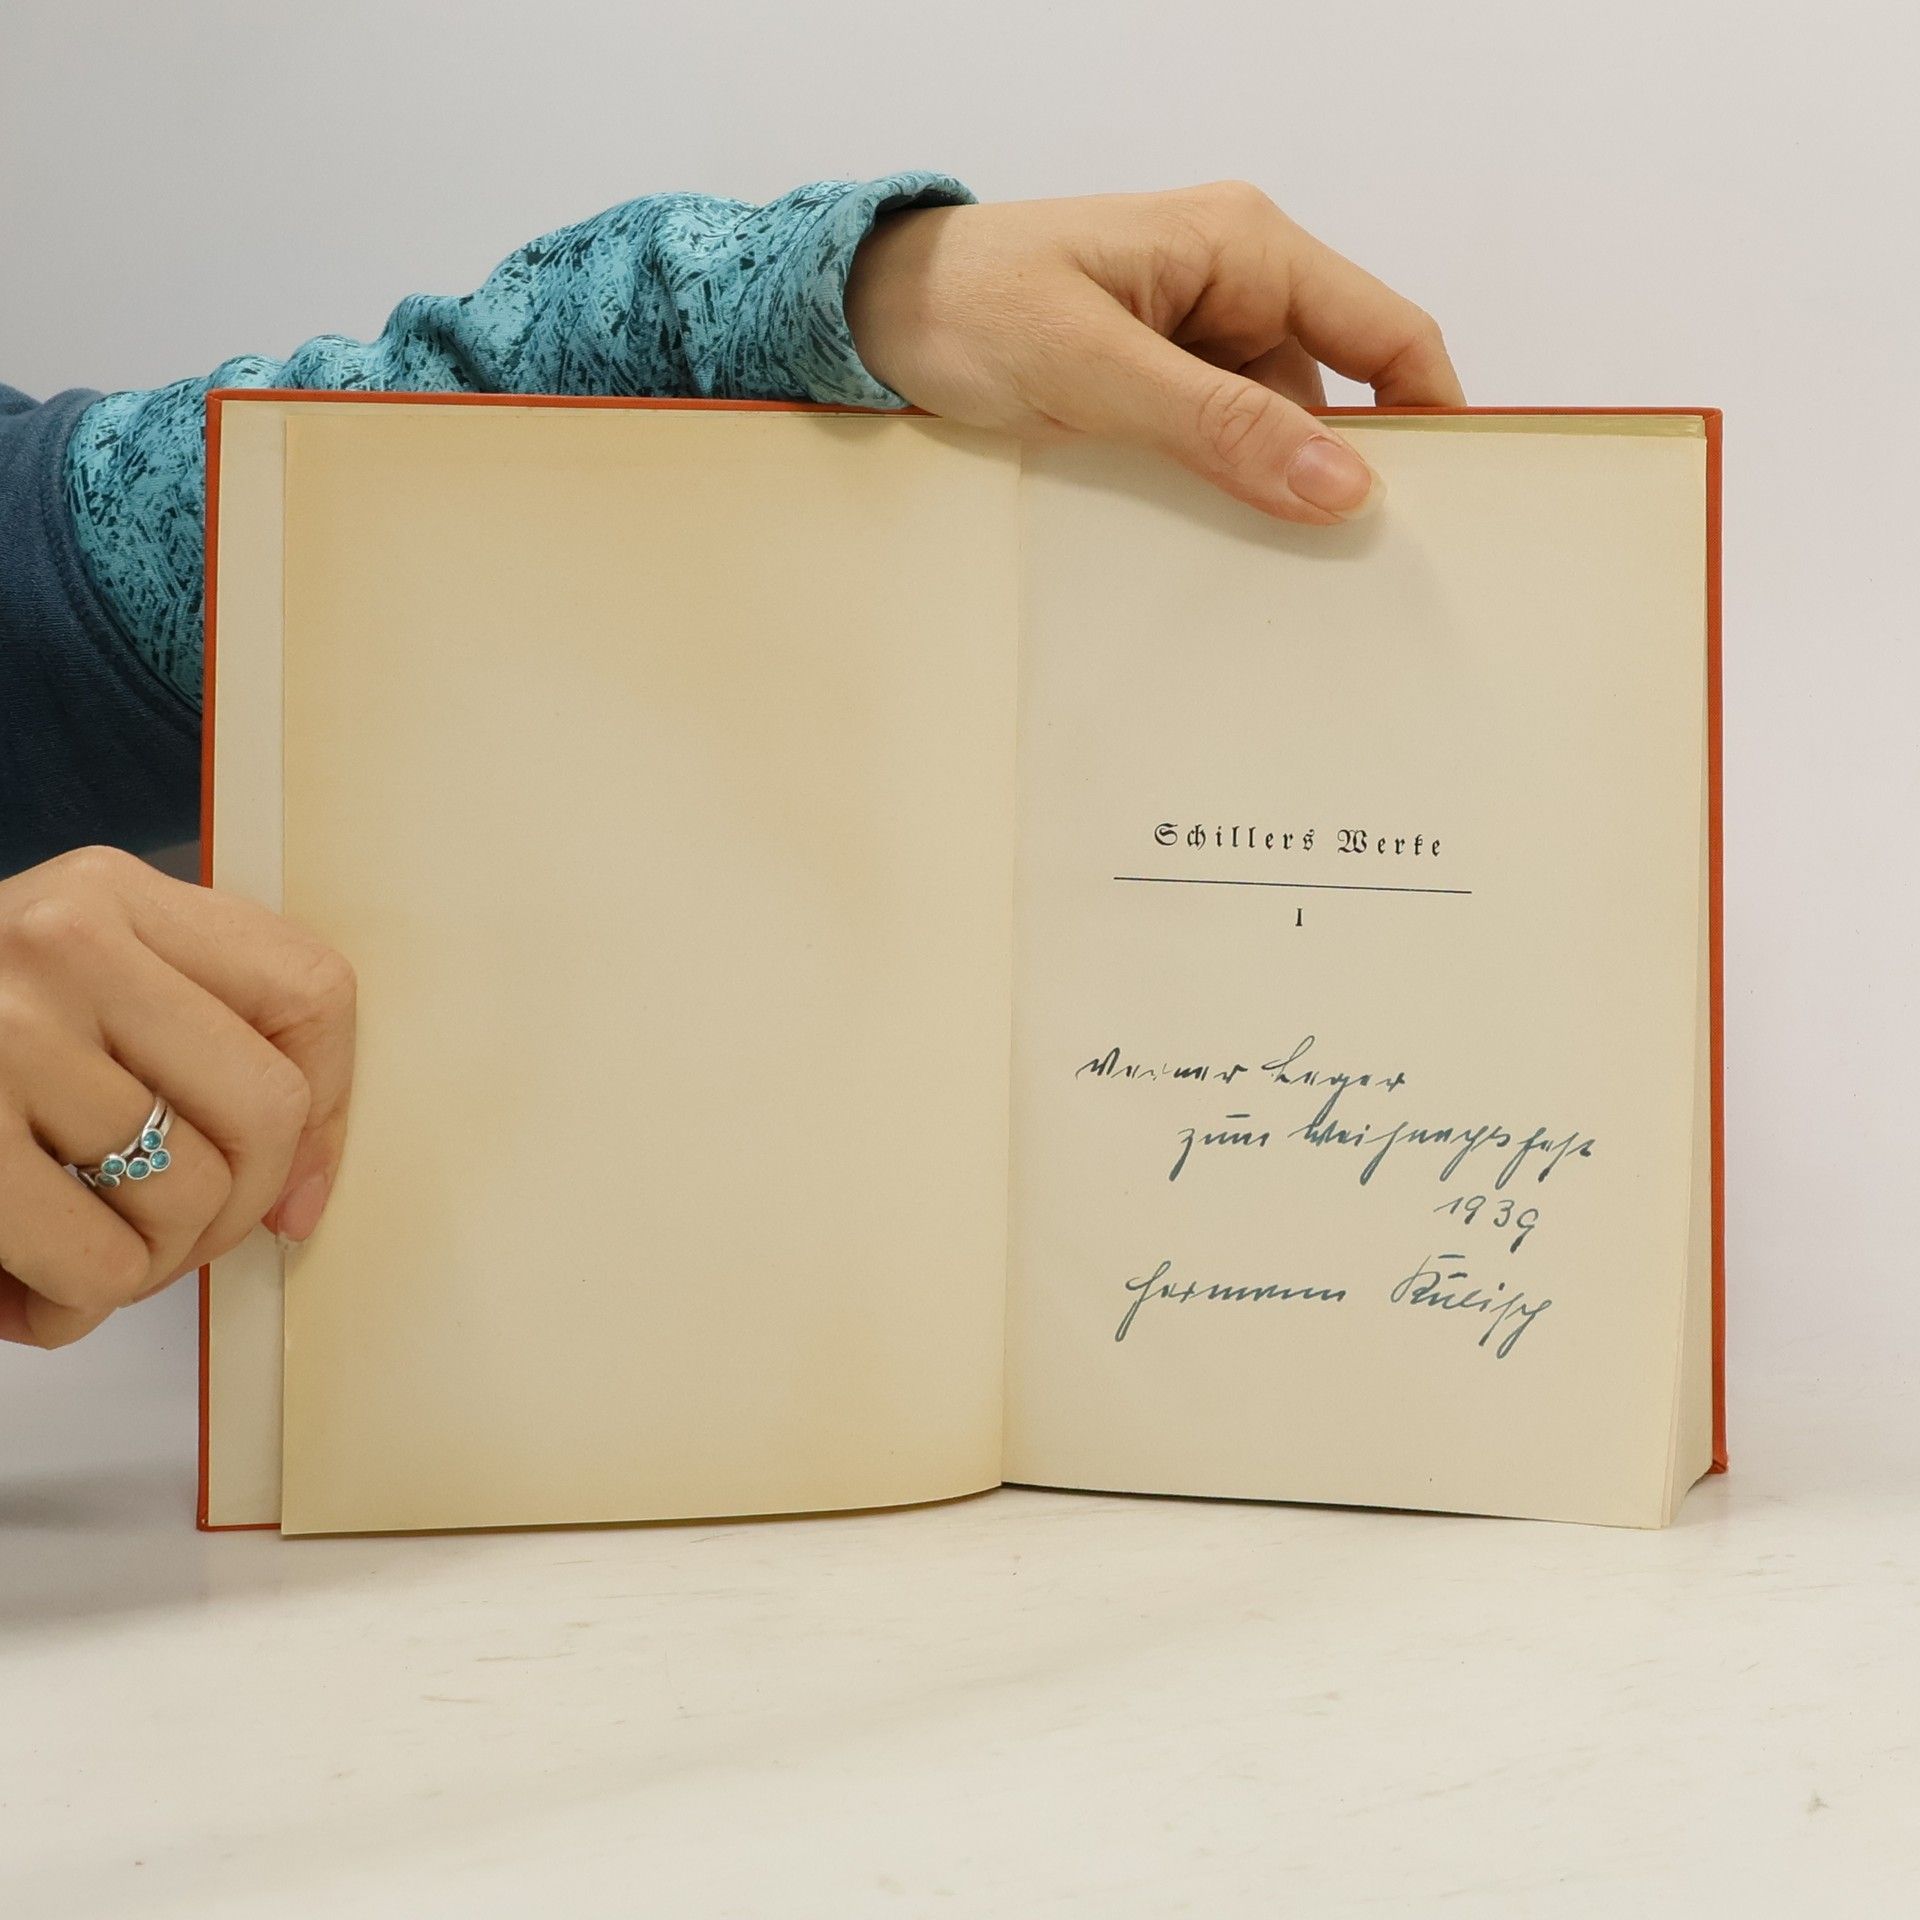 Schillers Werke
I
Werner Leger
zum Weihnachtsfest
1939
Hermann Kulisch